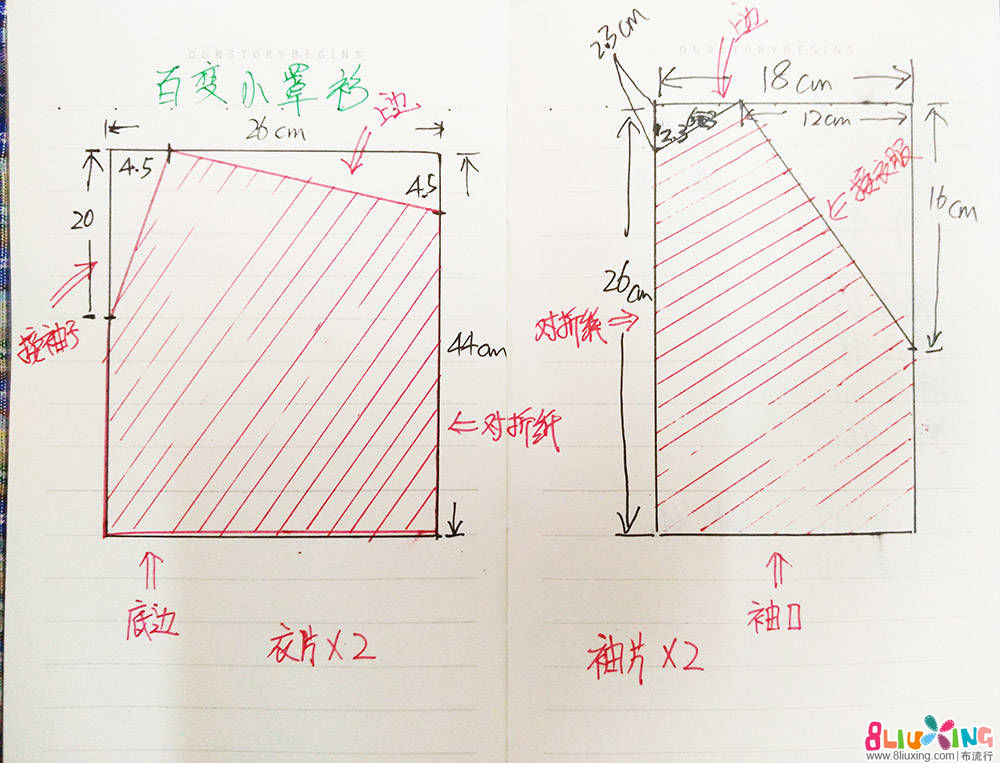 OURSTORYBEGINS
百变小罩衫
上边
26cm
4.5
4.5
20
接袖子
44cm
对折纸
底边
衣片×2
OURSTORYBEGINS
上边
2.3cm
18cm
2.3
12cm
接衣服
16cm
26cm
对折纸
袖口
袖片×2
8LIUXING
www.8liuxing.com|布流行